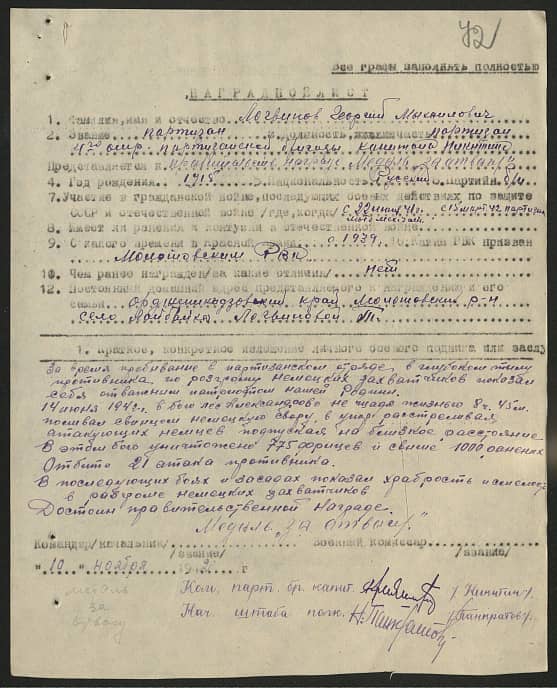 72
все графы заполнять полностью
НАГРАДНОЙ ЛИСТ
1. Фамилия, имя и отчество Логвинов Георгий Михайлович
2. Звание партизан и должность, часть партизан
партизанской бригады капитана Никитина
Представляется к правительств. награде Медаль "За отвагу"
4. Год рождения 1918 5. Национальность Русский 6. Партийн. б/п
7. Участие в гражданской войне, последующих боевых действиях по защите
СССР и отечественной войне /где, когда/ с 22 июня 41 г. с 15 март 42 партизан
8. Имеет ли ранения и контузии в отечественной войне
9. С какого времени в Красной Армии с 1939 10. Каким РВК призван
Молотовским РВК
10. Чем ранее награжден /за какие отличия/ нет
12. Постоянный домашний адрес представляемого к награждению и его
семьи Орджоникидзевский край Молотовский р-н
село Логвиновой Т.
1. Краткое, конкретное изложение личного боевого подвига или заслу
За время пребывание в партизанском отряде, в глубоком тылу
противника, по розгрому немецких захватчиков показал
себя отважным патриотом нашей Родины.
14 июня 1942 г. в бою лес Александрово не щадя жизнью 8 ч. 45 м.
поливал свинцом немецкую свору, в упор расстреливая
атакующих немцев подпуская на близкое расстояние
В этом бою уничтожено 775 фрицев и свыше 1000 раненых
Отбито 21 атака противника.
В последующих боях и засадах показал храбрость и
в разгроме немецких захватчиков
Достоин правительственной Награде.
Медаль "За отвагу".
Командир /начальник/ Военный комиссар
/звание/ /звание/
"10" ноября 1942 г
медаль
за
отвагу
Ком. парт. бр. капит. /Никитин/.
Нач. штаба полк. /Панкратов/.